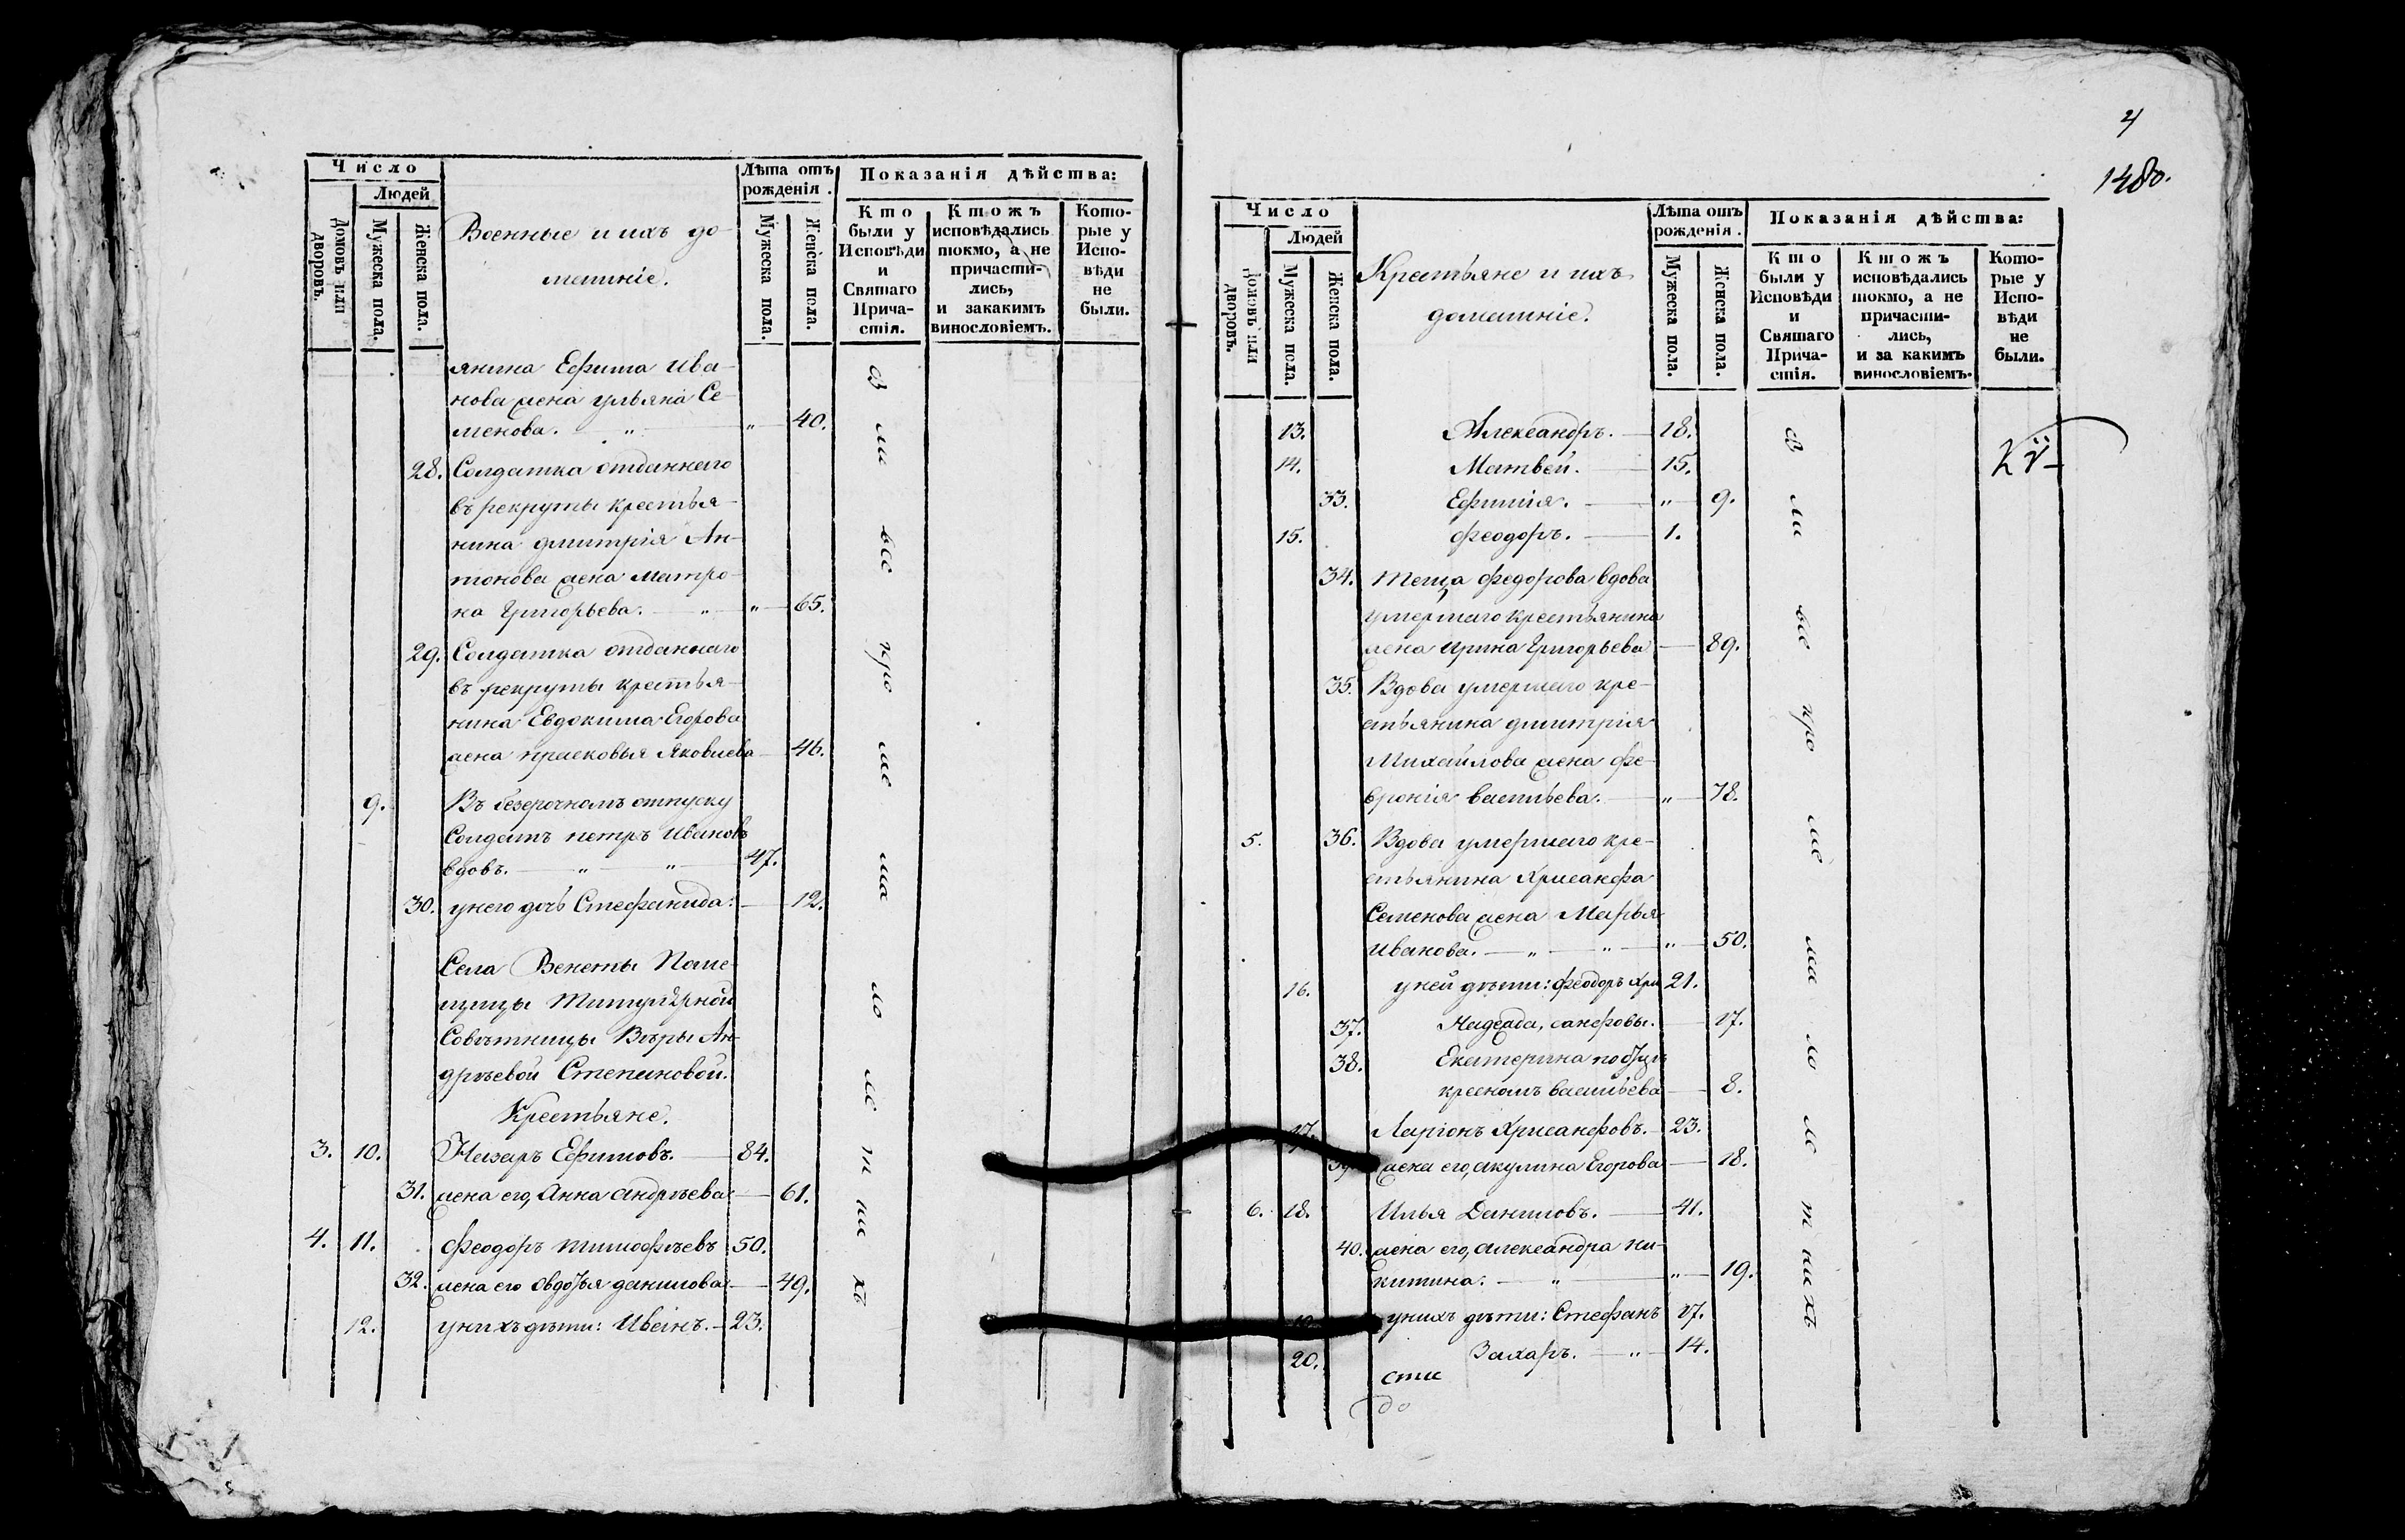 Число
Людей
Домовъ или дворовъ.
Мужеска пола.
Женска пола.
Военные и ихъ до-
машніе.
Лѣта отъ
рожденія.
Мужеска пола.
Женска пола.
Показанія дѣйства:
Кто
были у
Исповѣди
и
Святаго
Прича-
стія.
Ктожъ
исповѣдались
токмо, а не
причасти-
лись,
и закакимъ
винословіемъ.
Кото-
рые у
Испо-
вѣди
не
были.
янина Ефима Ива-
нова жена ульяна Се-
менова. " " 40.
28. Солдатка отданнаго
въ рекруты крестья-
нина дмитрія Ан-
тонова жена матро-
на Григорьева. " " 65.
29. Солдатка отданнаго
въ рекруты крестья-
нина Евдокима Егорова
жена прасковья Яковлева 46.
9. Въ безсрочномъ отпуску
Солдатъ петръ Ивановъ
вдовъ. " " 47.
30. унего дочь Стефанида. 12.
Села Венеты Поме-
щицы Титулярной
Совѣтницы Вѣры Ан-
дрѣевой Степановой.
Крестьяне.
3. 10. Назаръ Ефимовъ. 84.
31. жена его, Анна андрѣева. 61.
4. 11. Феодоръ тимофѣевъ 50.
32. жена его Овдотья данилова. 49.
12. унихъ дѣти: Иванъ. 23.
все
кро
ме
ма
ло
лѣ
т
ни
хъ
4
1480.
Число
Людей
Домовъ или дворовъ.
Мужеска пола.
Женска пола.
Крестьяне и ихъ
домашніе.
Лѣта отъ
рожденія.
Мужеска пола.
Женска пола.
Показанія дѣйства:
Кто
были у
Исповѣди
и
Святаго
Прича-
стія.
Ктожъ
исповѣдались
токмо, а не
причасти-
лись,
и за какимъ
винословіемъ.
Кото-
рые у
Испо-
вѣди
не
были.
13. Александръ. 18.
14. Матвей. 15.
33. Ефимія. " 9.
15. феодоръ. 1.
34. Теща федорова вдова
умершаго крестьянина
жена Ирина Григорьева 89.
35. Вдова умершаго кре-
стьянина дмитрія
Михайлова жена фе-
вронія васильева. " 78.
5. 36. Вдова умершаго кре-
стьянина Хрисанфа
Семенова жена Марья
Иванова. " " " 50.
16. уней дѣти: феодоръ Хри 21.
37. Надежда, санфовы. 17.
38. Екатерина
васильева 8.
17. Ларіонъ Хрисанфовъ. 23.
39. жена его, акулина Егорова 18.
6. 18. Илья Даниловъ. 41.
40. жена его, александра ни-
китина. " " 19.
унихъ дѣти: Стефанъ 17.
20. Захаръ. " 14.
все
кро
ме
ма
ло
лѣ
т
ни
хъ